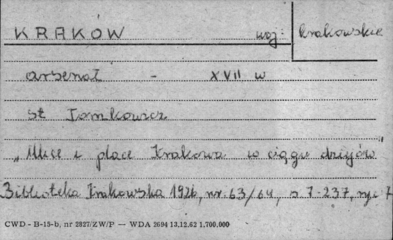 KRAKÓW woj: krakowskie
arsenał - XVII w
St Tomkowicz
„Ulice i place Krakowa w ciągu dziejów"
Biblioteka Krakowska 1926, nr. 63/64, s 7-237, ryc 7
CWD - B-15-b, nr 2827/ZW/P — WDA 2694 13.12.62 1.700.000